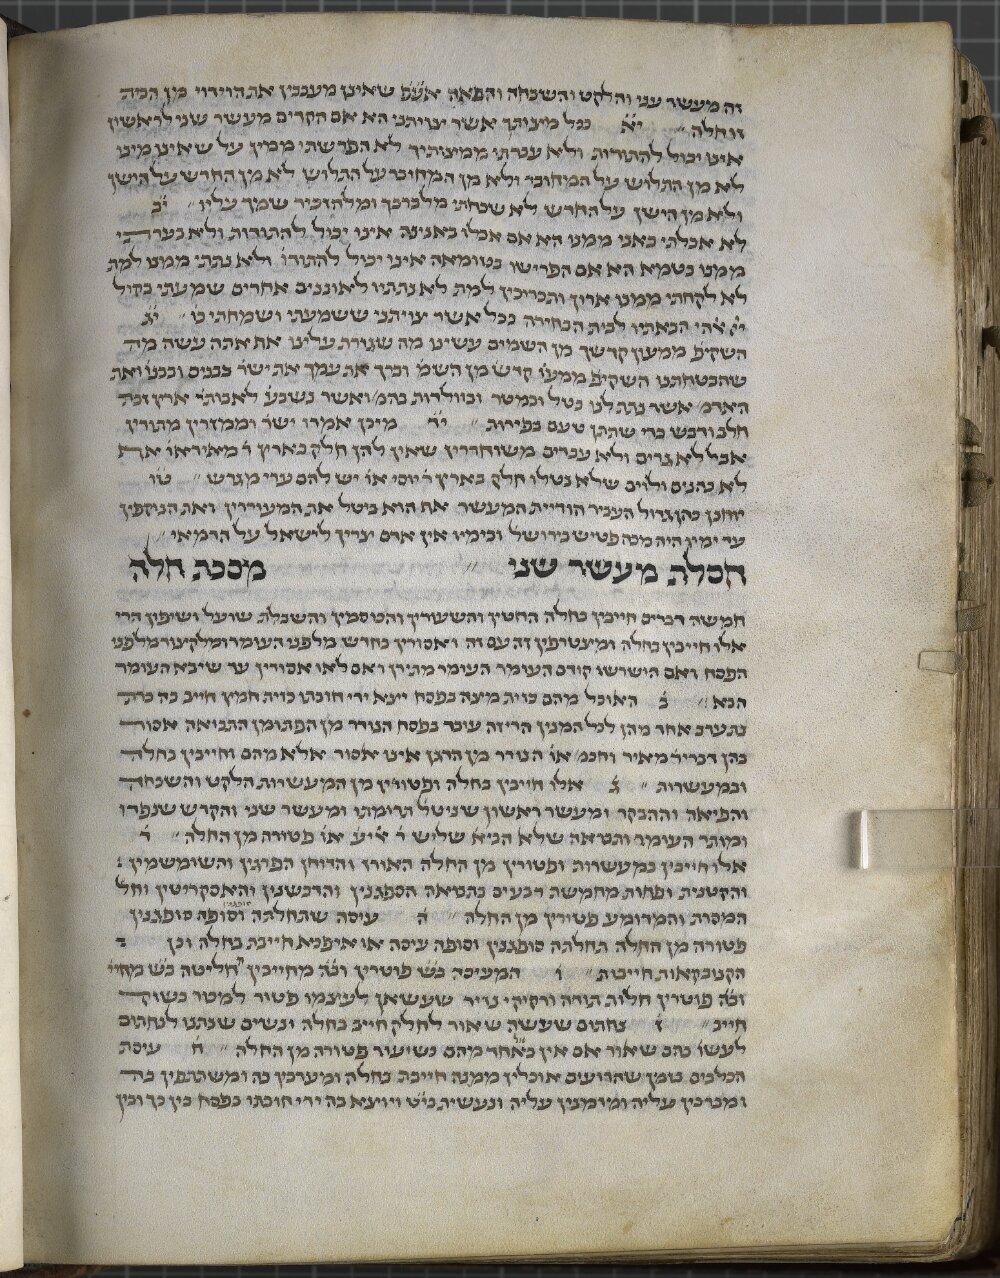 זה מעשר עני והלקט והשכחה והפאה אע֗פ֗ שאינן מעכבין את הוידוי מן הבית
זו חלה יא֗ ככל מצותך אשר צויתני הא אם הקדים מעשר שני לראשון
אינו יכול להתודות ולא עברתי ממצותיך לא הפרשתי ממין על שאינו מינו
לא מן התלוש על המחובר ולא מן המחובר על התלוש לא מן החדש על הישן
ולא מן הישן על החדש לא שכחתי מלברכך ומלהזכיר שמך עליו יב֗
לא אכלתי באני ממנו הא אם אכלו באנינה אינו יכול להתודות ולא בערתי
ממנו בטמא הא אם הפרישו בטומאה אינו יכול להתודו֗ ולא נתתי ממנו למת
לא לקחתי ממנו ארון ותכריכין למת לא נתתיו לאוננים אחרים שמעתי בקול
יי֗ אהי הבאתיו לבית הבחירה ככל אשר צויתני ששמעתי ושמחתי בו יג֗
השקיפ֗ ממעון קדשך מן השמים עשינו מה שגזרת עלינו את אתה עשה מה
שהבטחתנו השקיפ֗ ממעו֗ קדש֗ מן השמ֗ וברך את עמך את יש֗ר֗ בבנים ובבנו֗ ואת
האדמ֗ אשר נתת לנו בטל ובמטר ובוולדות בהמ֗ ואשר נשבע֗ לאבותי֗ ארץ זבת
חלב ודבש כדי שתתן טעם בפירות יד֗ מיכן אמרו יש֗ר֗ וממזרין מתודין
אבל לא גרים ולא עבדים משוחררין שאין להן חלק בארץ ר֗ מאיר או֗ אף
לא כהנים ולוים שלא נטלו חלק בארץ ר֗ יוסי או֗ יש להם ערי מגרש טו֗
יוחנן כהן גדול העביר הודיית המעשר אף הוא ביטל את המעוררין ואת הנוקפין
עד ימיו היה מכה פטיש בירושל֗ ובימיו אין אדם צריך לישאל על הדמאי
חסלת מעשר שני מסכת חלה
חמשה דברים חייבין בחלה החטין והשעורין והכוסמין והשבלת שועל ושיפון הרי
אלו חייבין בחלה ומצטרפין זה עם זה ואסורין בחדש מלפני העומר ומלקצור מלפני
הפסח ואם השרישו קודם העומר העומר מתירן ואם לאו אסורין עד שיבא העומר
הבא ב֗ האוכל מהם כזית מצה בפסח ייצא ידי חובתו כזית חמץ חייב בה כרת
נתערב אחד מהן לכל המנין הרי זה עובר בפסח הנודר מן הפת ומן התבואה אסור
בהן דברי ר֗ מאיר וחכמ֗ או֗ הנודר מן הדגן אינו אסור אלא מהם וחייבין בחלה
ובמעשרות ג֗ אלו חייבין בחלה ופטורין מן המעשרות הלקט והשכחה
והפיאה וההבקר ומעשר ראשון שניטל תרומתו ומעשר שני והקדש שנפדו
ומותר העומר ותבואה שלא הביא שליש ר֗ אליע֗ או֗ פטורה מן החלה ד֗
אלו חייבין במעשרות ופטורין מן החלה האורז והדוחן הפרגין והשומשמין
והקטנית ופחות מחמשת רבעים בתבואה הספגנין והדבשנין והאסקריטין וחל
המסרת והמדומע פטורין מן החלה ה֗ עיסה שתחלתה וסופה סופגנין
פטורה מן החלה תחלתה סופגנין וסופה עיסה או איפכא חייבת בחלה וכן
הקנובקאות חייבות ו֗ המעיסה ב֗ש֗ פוטרין וב֗ה֗ מחייבין חליטה ב֗ש֗ מחיי֗
וב֗ה֗ פוטרין חלות תודה ורקיקי נזיר שעשאן לעצמו פטור למכור בשוק
חייב ז֗ נחתום שעשה שאור לחלק חייב בחלה ונשים שנתנו לנחתום
לעשו֗ להם שאור אם אין באחד מהם כשיעור פטורה מן החלה ח֗ עיסת
הכלבים בזמן שהרועים אוכלין ממנה חייבת בחלה ומערבין בה ומשתתפין בה
ומברכין עליה ומזמנין עליה ונעשית ביו֗ט֗ ויוצא בה ידי חובתו בפסח בין כך ובין